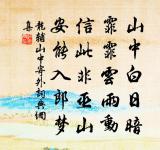 山中白日暗
霏霏雲雨動
信此非巫山
安能入郎梦
龍輔山中寄外詞典網
集